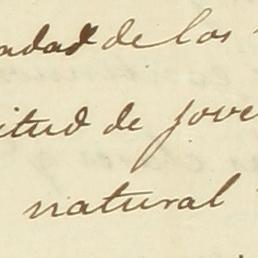 adad de los
itud de jove
natural